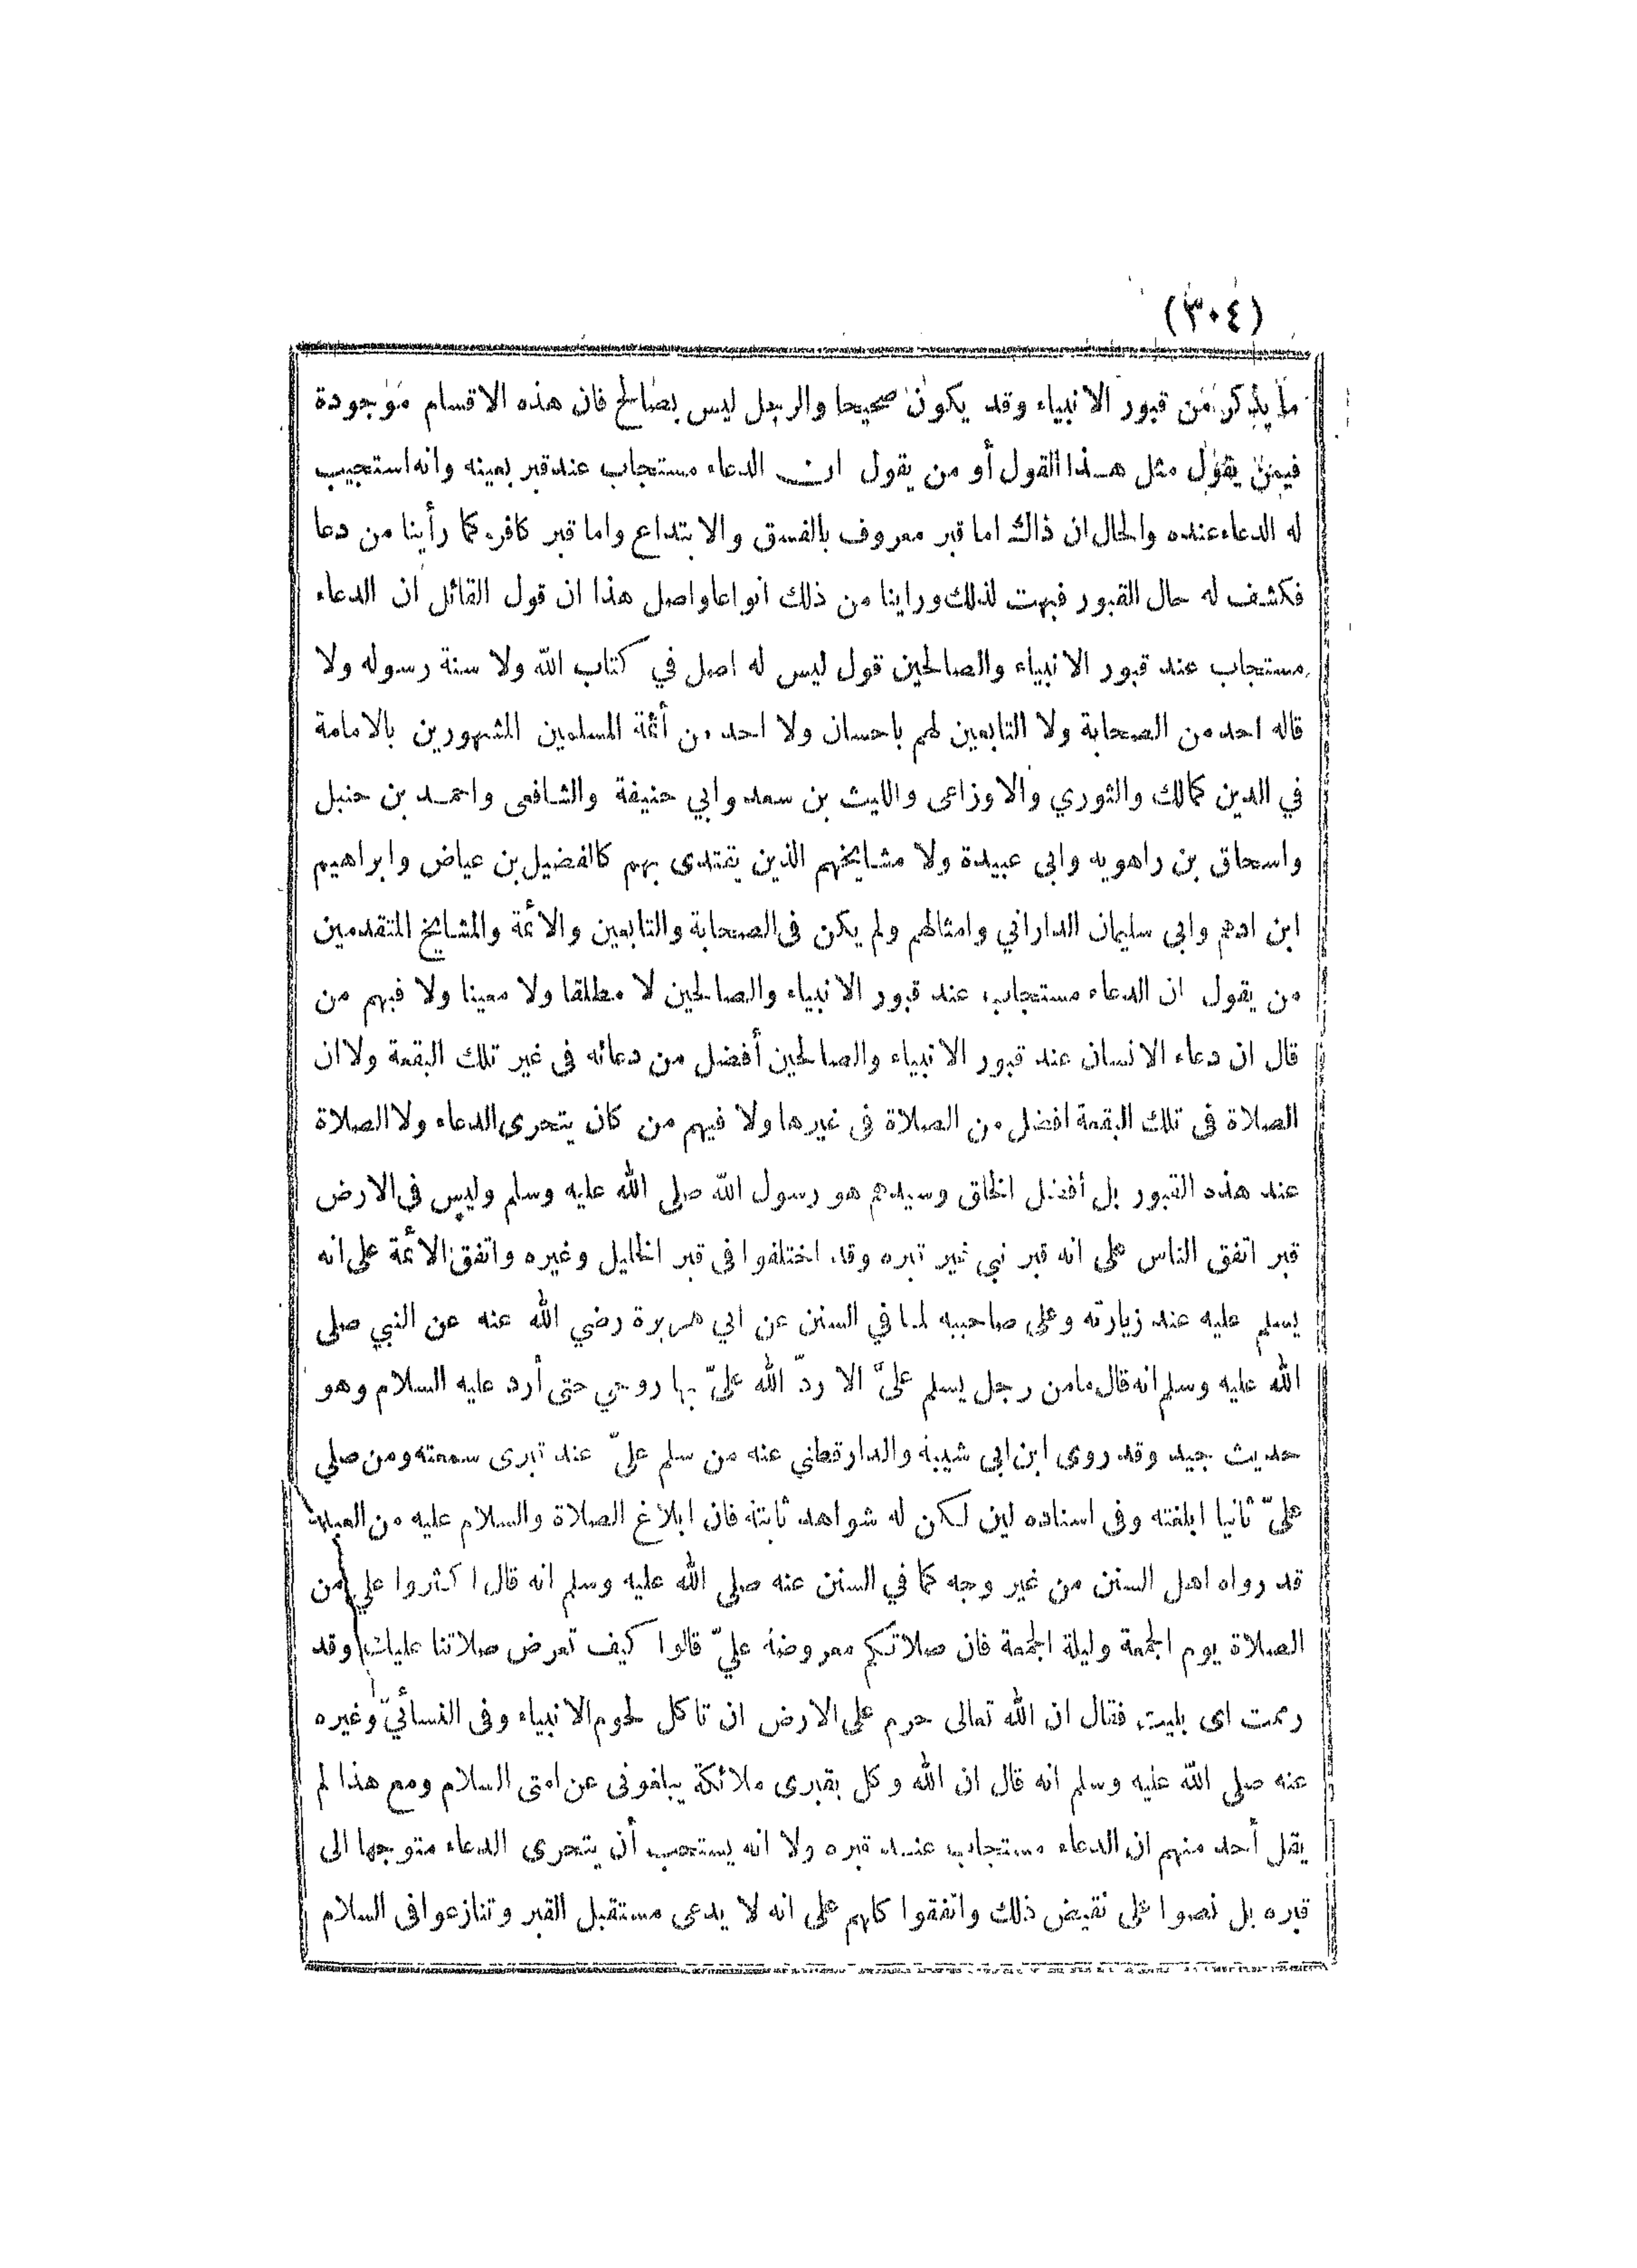 (٣٠٤)
ما يذكر من قبور الانبياء وقد يكون صحيحا والرجل ليس بصالح فان هذه الاقسام موجودة
فيمن يقول مثل هذا القول أو من يقول ان الدعاء مستجاب عند قبر بعينه وانه استجيب
له الدعاء عنده والحال ان ذاك اما قبر معروف بالفسق والابتداع واما قبر كافر كما رأينا من دعا
فكشف له حال القبور فبهت لذلك وراينا من ذلك انواعا واصل هذا ان قول القائل ان الدعاء
مستجاب عند قبور الانبياء والصالحين قول ليس له اصل في كتاب الله ولا سنة رسوله ولا
قاله احد من الصحابة ولا التابعين لهم باحسان ولا احد من أئمة المسلمين المشهورين بالامامة
في الدين كمالك والثوري والاوزاعى والليث بن سعد وابي حنيفة والشافعى واحمد بن حنبل
واسحاق بن راهويه وابى عبيدة ولا مشايخهم الذين يقتدى بهم كالفضيل بن عياض وابراهيم
ابن ادهم وابى سليمان الداراني وامثالهم ولم يكن فى الصحابة والتابعين والائمة والمشايخ المتقدمين
من يقول ان الدعاء مستجاب عند قبور الانبياء والصالحين لا مطلقا ولا معينا ولا فيهم من
قال ان دعاء الانسان عند قبور الانبياء والصالحين أفضل من دعائه فى غير تلك البقعة ولا ان
الصلاة فى تلك البقعة افضل من الصلاة فى غيرها ولا فيهم من كان يتحرى الدعاء ولا الصلاة
عند هذه القبور بل أفضل الخلق وسيدهم هو رسول الله صلى الله عليه وسلم وليس فى الارض
قبر اتفق الناس على انه قبر نبي غير قبره وقد اختلفوا فى قبر الخليل وغيره واتفق الائمة على انه
يسلم عليه عند زيارته وعلى صاحبيه لما في السنن عن ابي هريرة رضي الله عنه عن النبي صلى
الله عليه وسلم انه قال ما من رجل يسلم علىّ الا ردّ الله علىّ بها روحي حتى أرد عليه السلام وهو
حديث جيد وقد روى ابن ابى شيبة والدارقطني عنه من سلم علىّ عند قبرى سمعته ومن صلي
علىّ نائيا ابلغته وفى اسناده لين لكن له شواهد ثابتة فان ابلاغ الصلاة والسلام عليه من البعد
قد رواه اهل السنن من غير وجه كما في السنن عنه صلى الله عليه وسلم انه قال اكثروا علي من
الصلاة يوم الجمعة وليلة الجمعة فان صلاتكم معروضة عليّ قالوا كيف تعرض صلاتنا عليك وقد
رممت اى بليت فقال ان الله تعالى حرم على الارض ان تاكل لحوم الانبياء وفى النسائيّ وغيره
عنه صلى الله عليه وسلم انه قال ان الله وكل بقبرى ملائكة يبلغونى عن امتى السلام ومع هذا لم
يقل أحد منهم ان الدعاء مستجاب عند قبره ولا انه يستحب أن يتحرى الدعاء متوجها الى
قبره بل نصوا على نقيض ذلك واتفقوا كلهم على انه لا يدعى مستقبل القبر وتنازعوا فى السلام